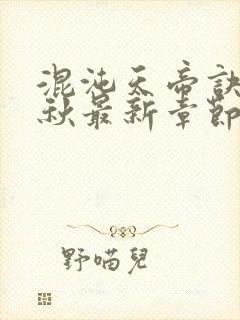 混沌天帝訣
秋最新章節
野喵兒